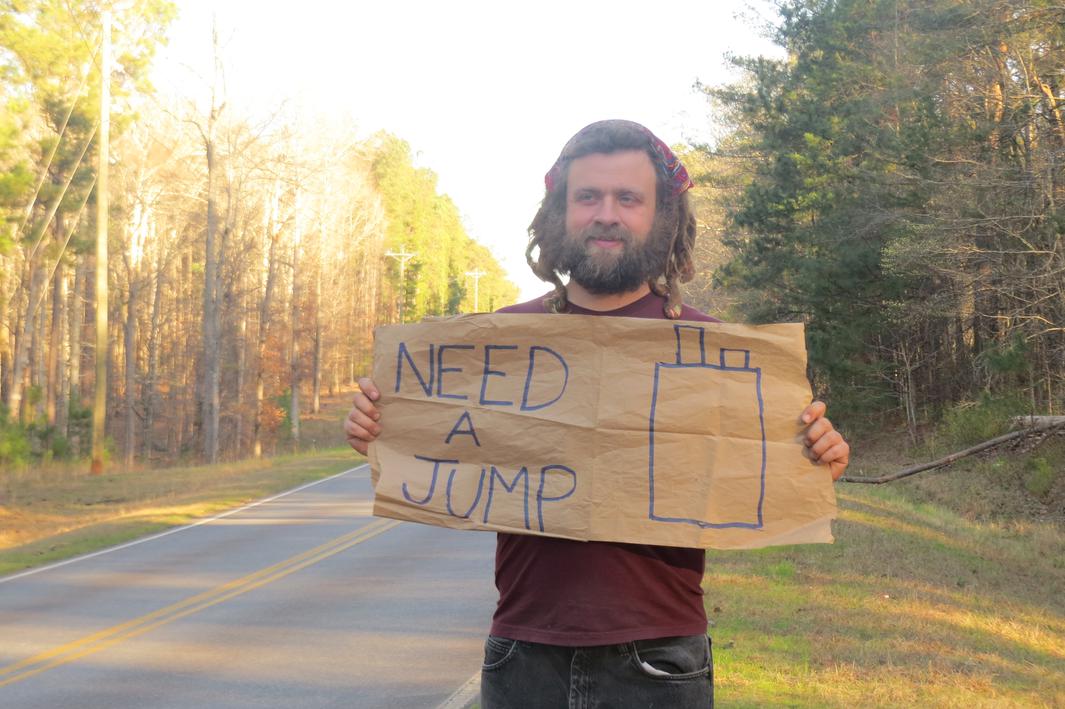 NEED
A
JUMP